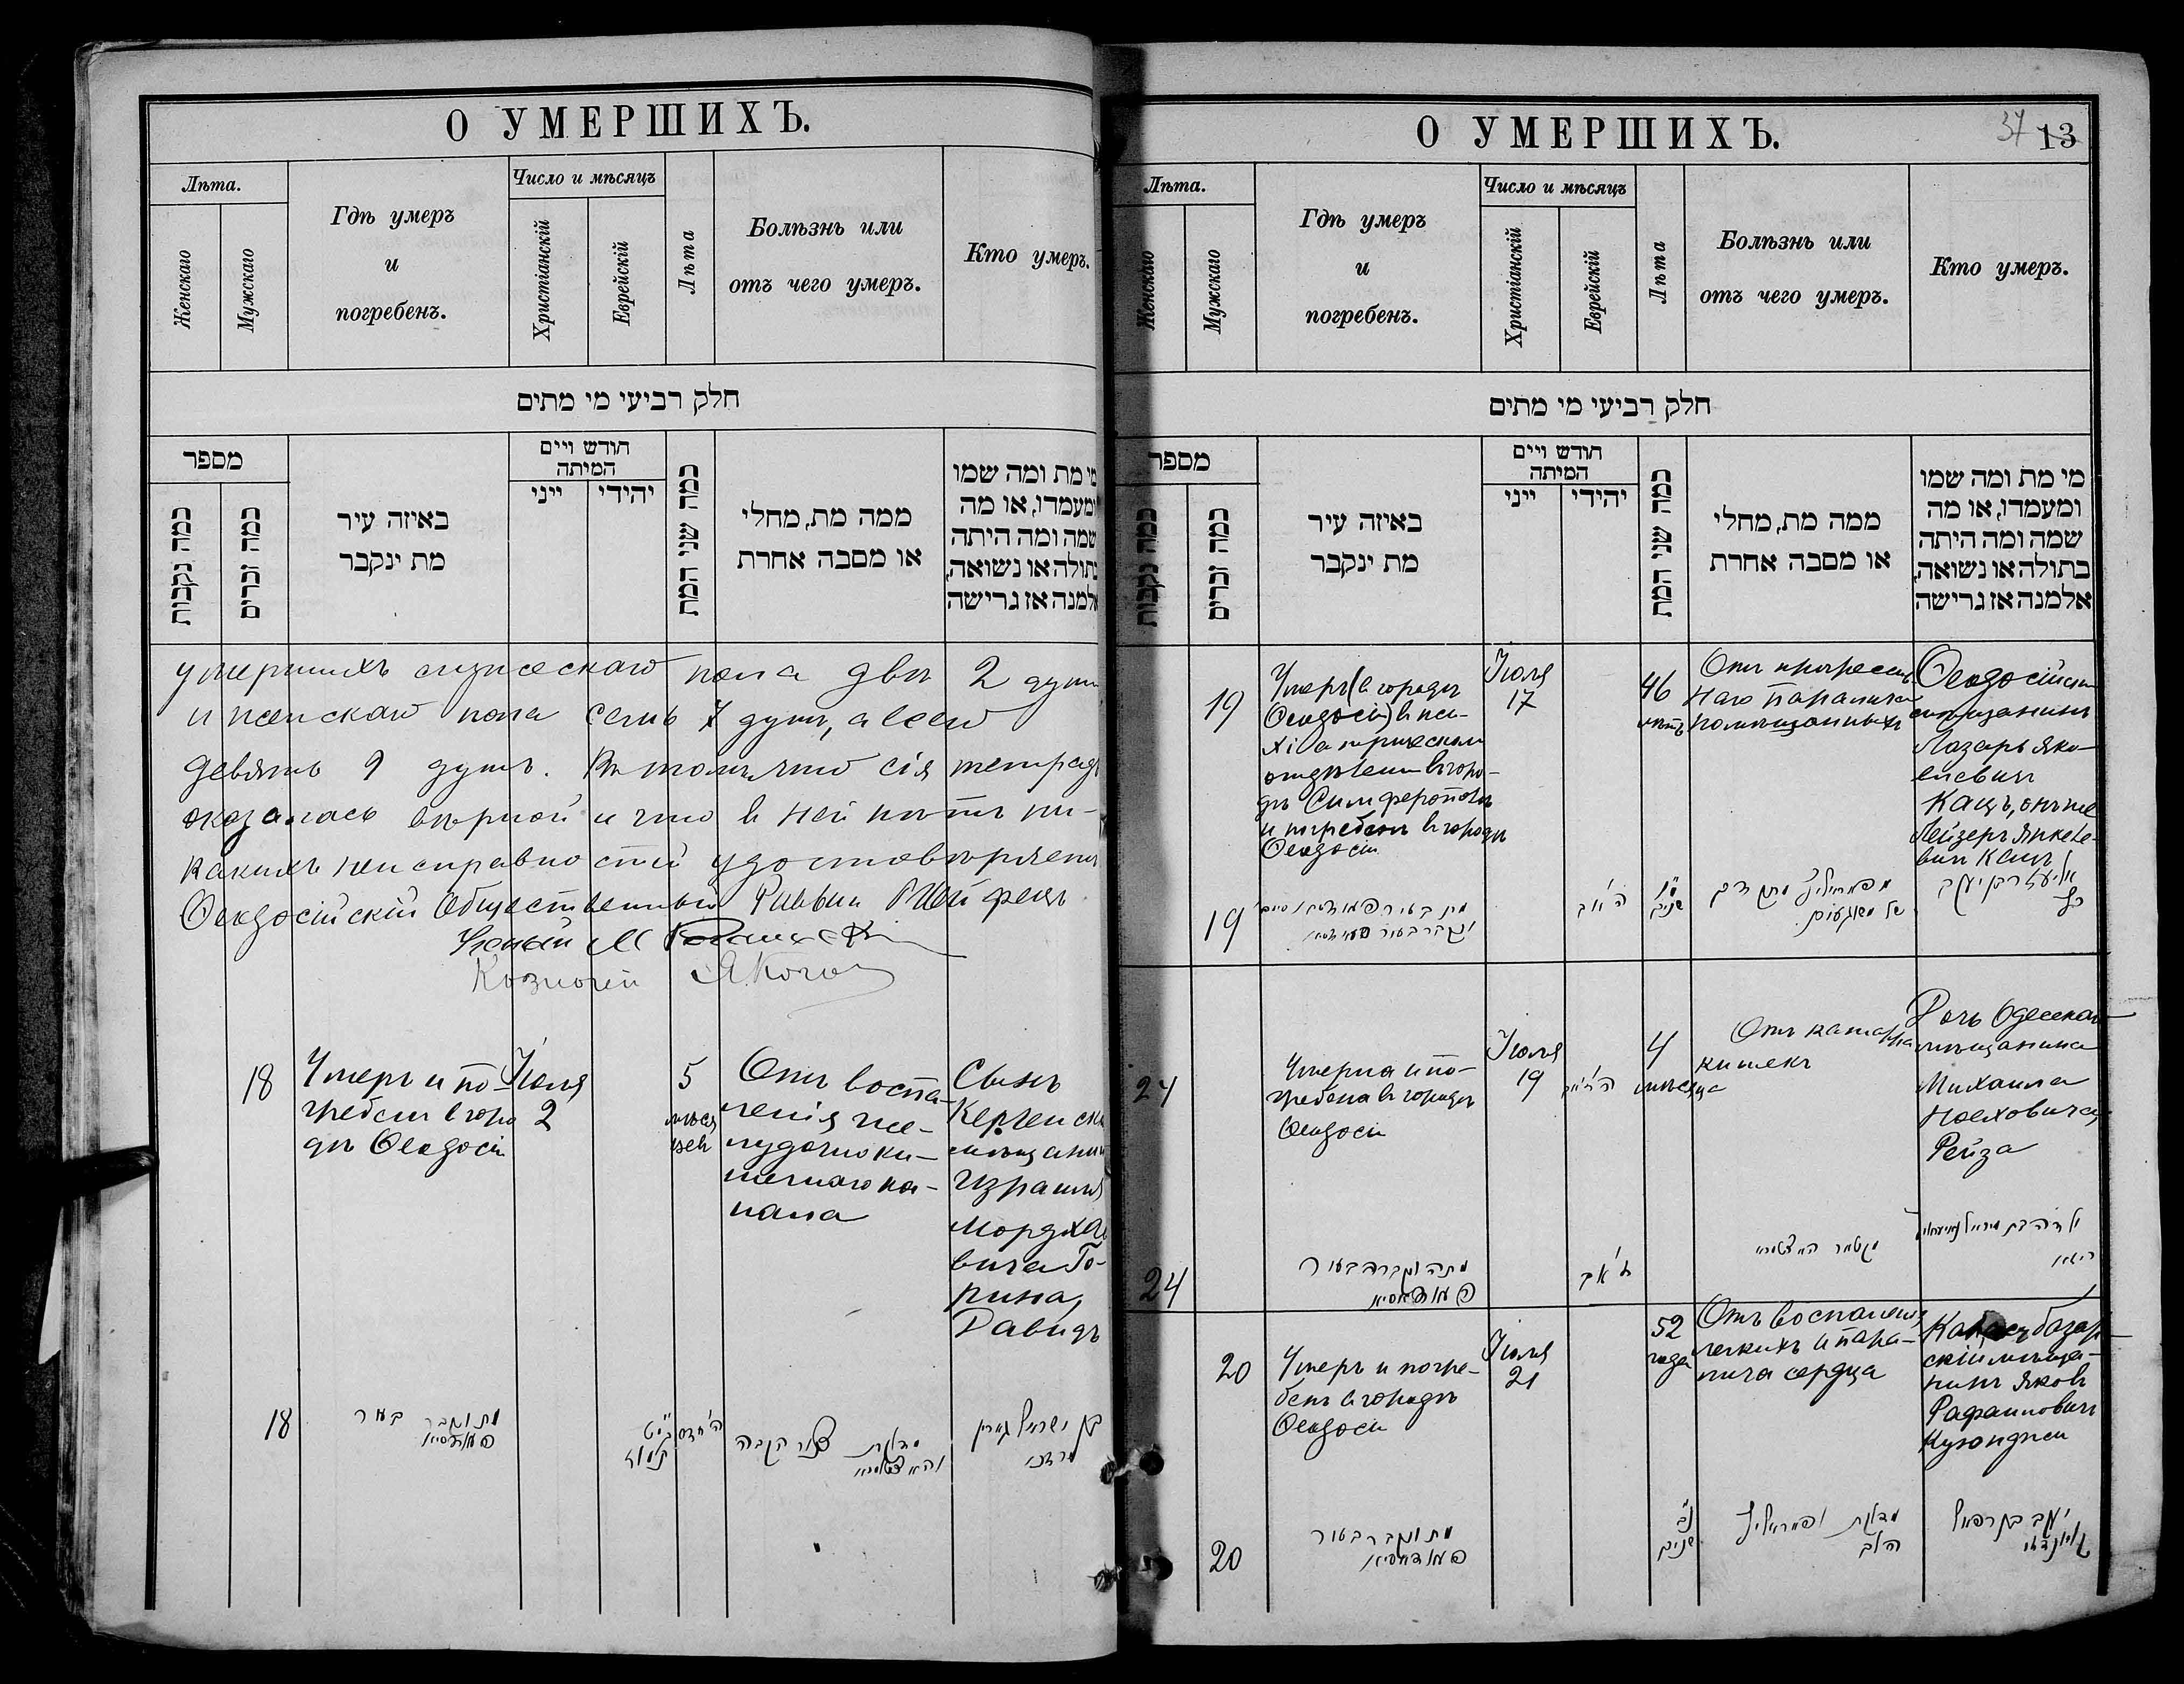 О УМЕРШИХЪ.
Лѣта.
Женскаго
Мужскаго
Гдѣ умеръ
и
погребенъ.
Число и мѣсяцъ
Христіанскій
Еврейскій
Лѣта
Болѣзнь или
отъ чего умеръ.
Кто умеръ.
חלק רביעי מי מתים
מספר
כמה נקבות
כמה זכרים
באיזה עיר
מת ינקבר
חודש ויים
המיתה
ייני
יהידי
כמה שני המת
ממה מת, מחלי
או מסבה אחרת
מי מת ומה שמו
ומעמדו, או מה
שמה ומה היתה
בתולה או נשואה,
אלמנה אז גרישה
умершихъ мужескаго пола двѣ 2 души
и женскаго пола семь 7 душъ, а всего
девять 9 душъ. Въ томъ что сія тетрадь
оказалась вѣрной и что в ней нѣтъ ни-
какихъ неисправностей удостовѣряетъ
Ѳеодосійскій Общественный Раввинъ
Ученый М
Казначей
18
Умеръ и по-
гребенъ в горо
дѣ Ѳеодосіи
Іюля
2
5
мѣся
цев
Отъ воспа-
ленія же-
лудочно ки-
шечнаго ка-
нала
Сынъ
Керченск
мѣщанин
Израиля
Мордха
вича Го-
рина,
Давидъ
18
מת ונקבר בעיר
פעאדאסיא
בן ישראל גארין
מרדכי
О УМЕРШИХЪ.
37 13
Лѣта.
Женскаго
Мужскаго
Гдѣ умеръ
и
погребенъ.
Число и мѣсяцъ
Христіанскій
Еврейскій
Лѣта
Болѣзнь или
отъ чего умеръ.
Кто умеръ.
חלק רביעי מי מתים
מספר
כמה נקבות
כמה זכרים
באיזה עיר
מת ינקבר
חודש ויים
המיתה
ייני
יהידי
כמה שני המת
ממה מת, מחלי
או מסבה אחרת
מי מת ומה שמו
ומעמדו, או מה
שמה ומה היתה
בתולה או נשואה,
אלמנה אז גרישה
19
Умеръ (в городѣ
Ѳеодосіи) в пси-
хіатрическом
отдѣленіи в горо-
дѣ Симферополѣ
и погребенъ в городѣ
Ѳеодосіи
Іюля
17
46
лѣтъ
Отъ прогрессив
наго паралича
помѣшанныхъ
Ѳеодосійскій
мѣщанинъ
Лазарь Яко-
влевичъ
Кацъ, онъ же
Лейзеръ Янкеле-
вич Кацъ
19
ה' אב
שנים
אליעזר בן יעקב
כץ
24
Умерла и по-
гребена в городѣ
Ѳеодосіи
Іюля
19
4
мѣсяца
Отъ катарра
кишекъ
Дочь Одесскаго
мѣщанина
Михаила
Ноеховича,
Рейза
24
מתה ונקברה בעיר
פעאדאסיא
ז' אב
20
Умеръ и погре-
бенъ в городѣ
Ѳеодосіи
Іюля
21
52
года
Отъ воспаленія
легкихъ и пара-
лича сердца
Карасубазар-
скій мѣща-
нинъ Яковъ
Рафаиловичъ
20
מת ונקבר בעיר
פעאדאסיא
נ"ב
שנים
יעקב בן רפאל